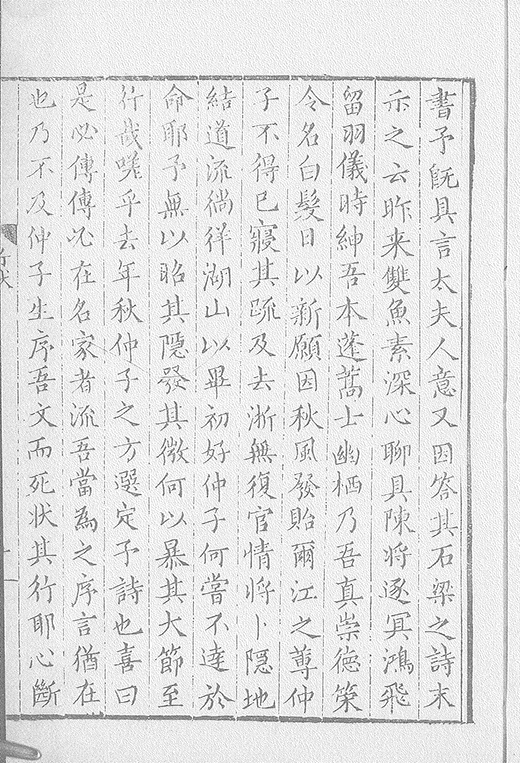 書予既具言太夫人意又因答其石梁之詩末
示之云昨来雙魚素深心聊具陳将逐冥鴻飛
留羽儀時紳吾本蓬蒿士幽栖乃吾真崇德榮
令名白髮日以新願因秋風發貽爾江之蓴仲
子不得已寢其疏及去浙無復官情将卜隱地
結道流徜徉湖山以畢初好仲子何嘗不達於
命耶予無以昭其隱發其微何以暴其大節至
行哉嗟乎去年秋仲子之方選定予詩也喜曰
是必傳傳必在名家者流吾當為之序言猶在
也乃不及仲子生序吾文而死狀其行耶心斷
行狀